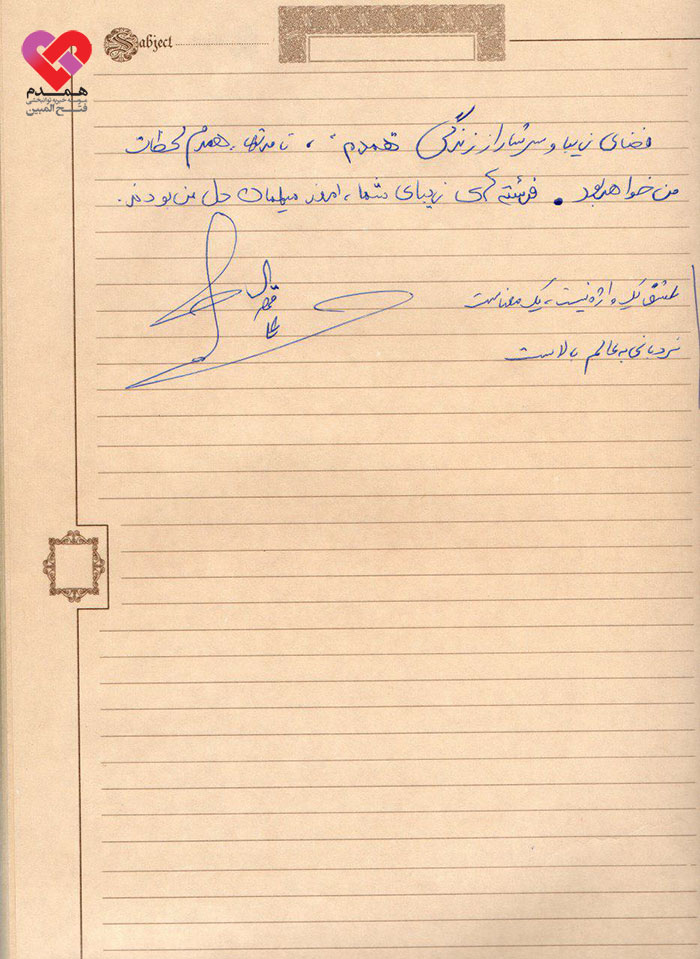 Subject
همدم
موسسه خیریه توانبخشی
فتح المبین
فضای زیبا و سرشار از زندگی "همدم"، تا مدتها، همدم لحظات
من خواهد بود. فرشته های زیبای شما، امروز میهمان دل من بودند.
عشق یک واژه نیست، یک معناست
نردبانی به عالم بالاست